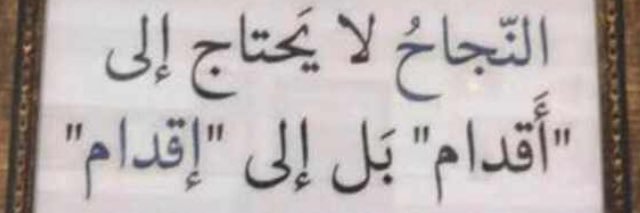 النّجاحُ لا يَحتاج إلى
"أَقدام" بَل إلى "إقدام"